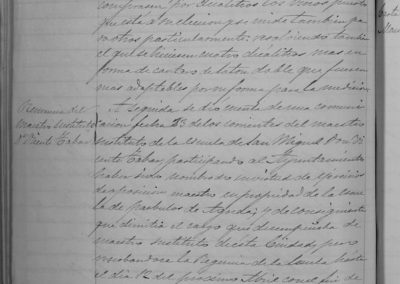 comprasen por decalitros los unos puesto
que está á su eleccion, y se mida tambien pa
otros particularmente, resolviendo tambien
el que se hiciesen cuatro dicalitros mas en
forma de cantaro de laton doble que fuesen
mas adaptables por su forma para la medicion.
Renuncia del
maestro sustituto
Dn Vicente Tabar
A seguida se dio cuenta de una comuni
cacion fecha 23 de los corrientes del maestro
sustituto de la Escuela de San Miguel Don Vi
cente Tabar, participando al Ayuntamiento
haber sido nombrado en virtud de ejercicios
de oposicion maestro en propiedad de la escue
la de parbulos de Agreda; y de consiguiente
que dimitia el cargo que desempeñaba de
maestro sustituto de esta Ciudad, pero
reservandose la Regencia de la Escuela hasta
el dia 12 del proximo Abril con el fin de